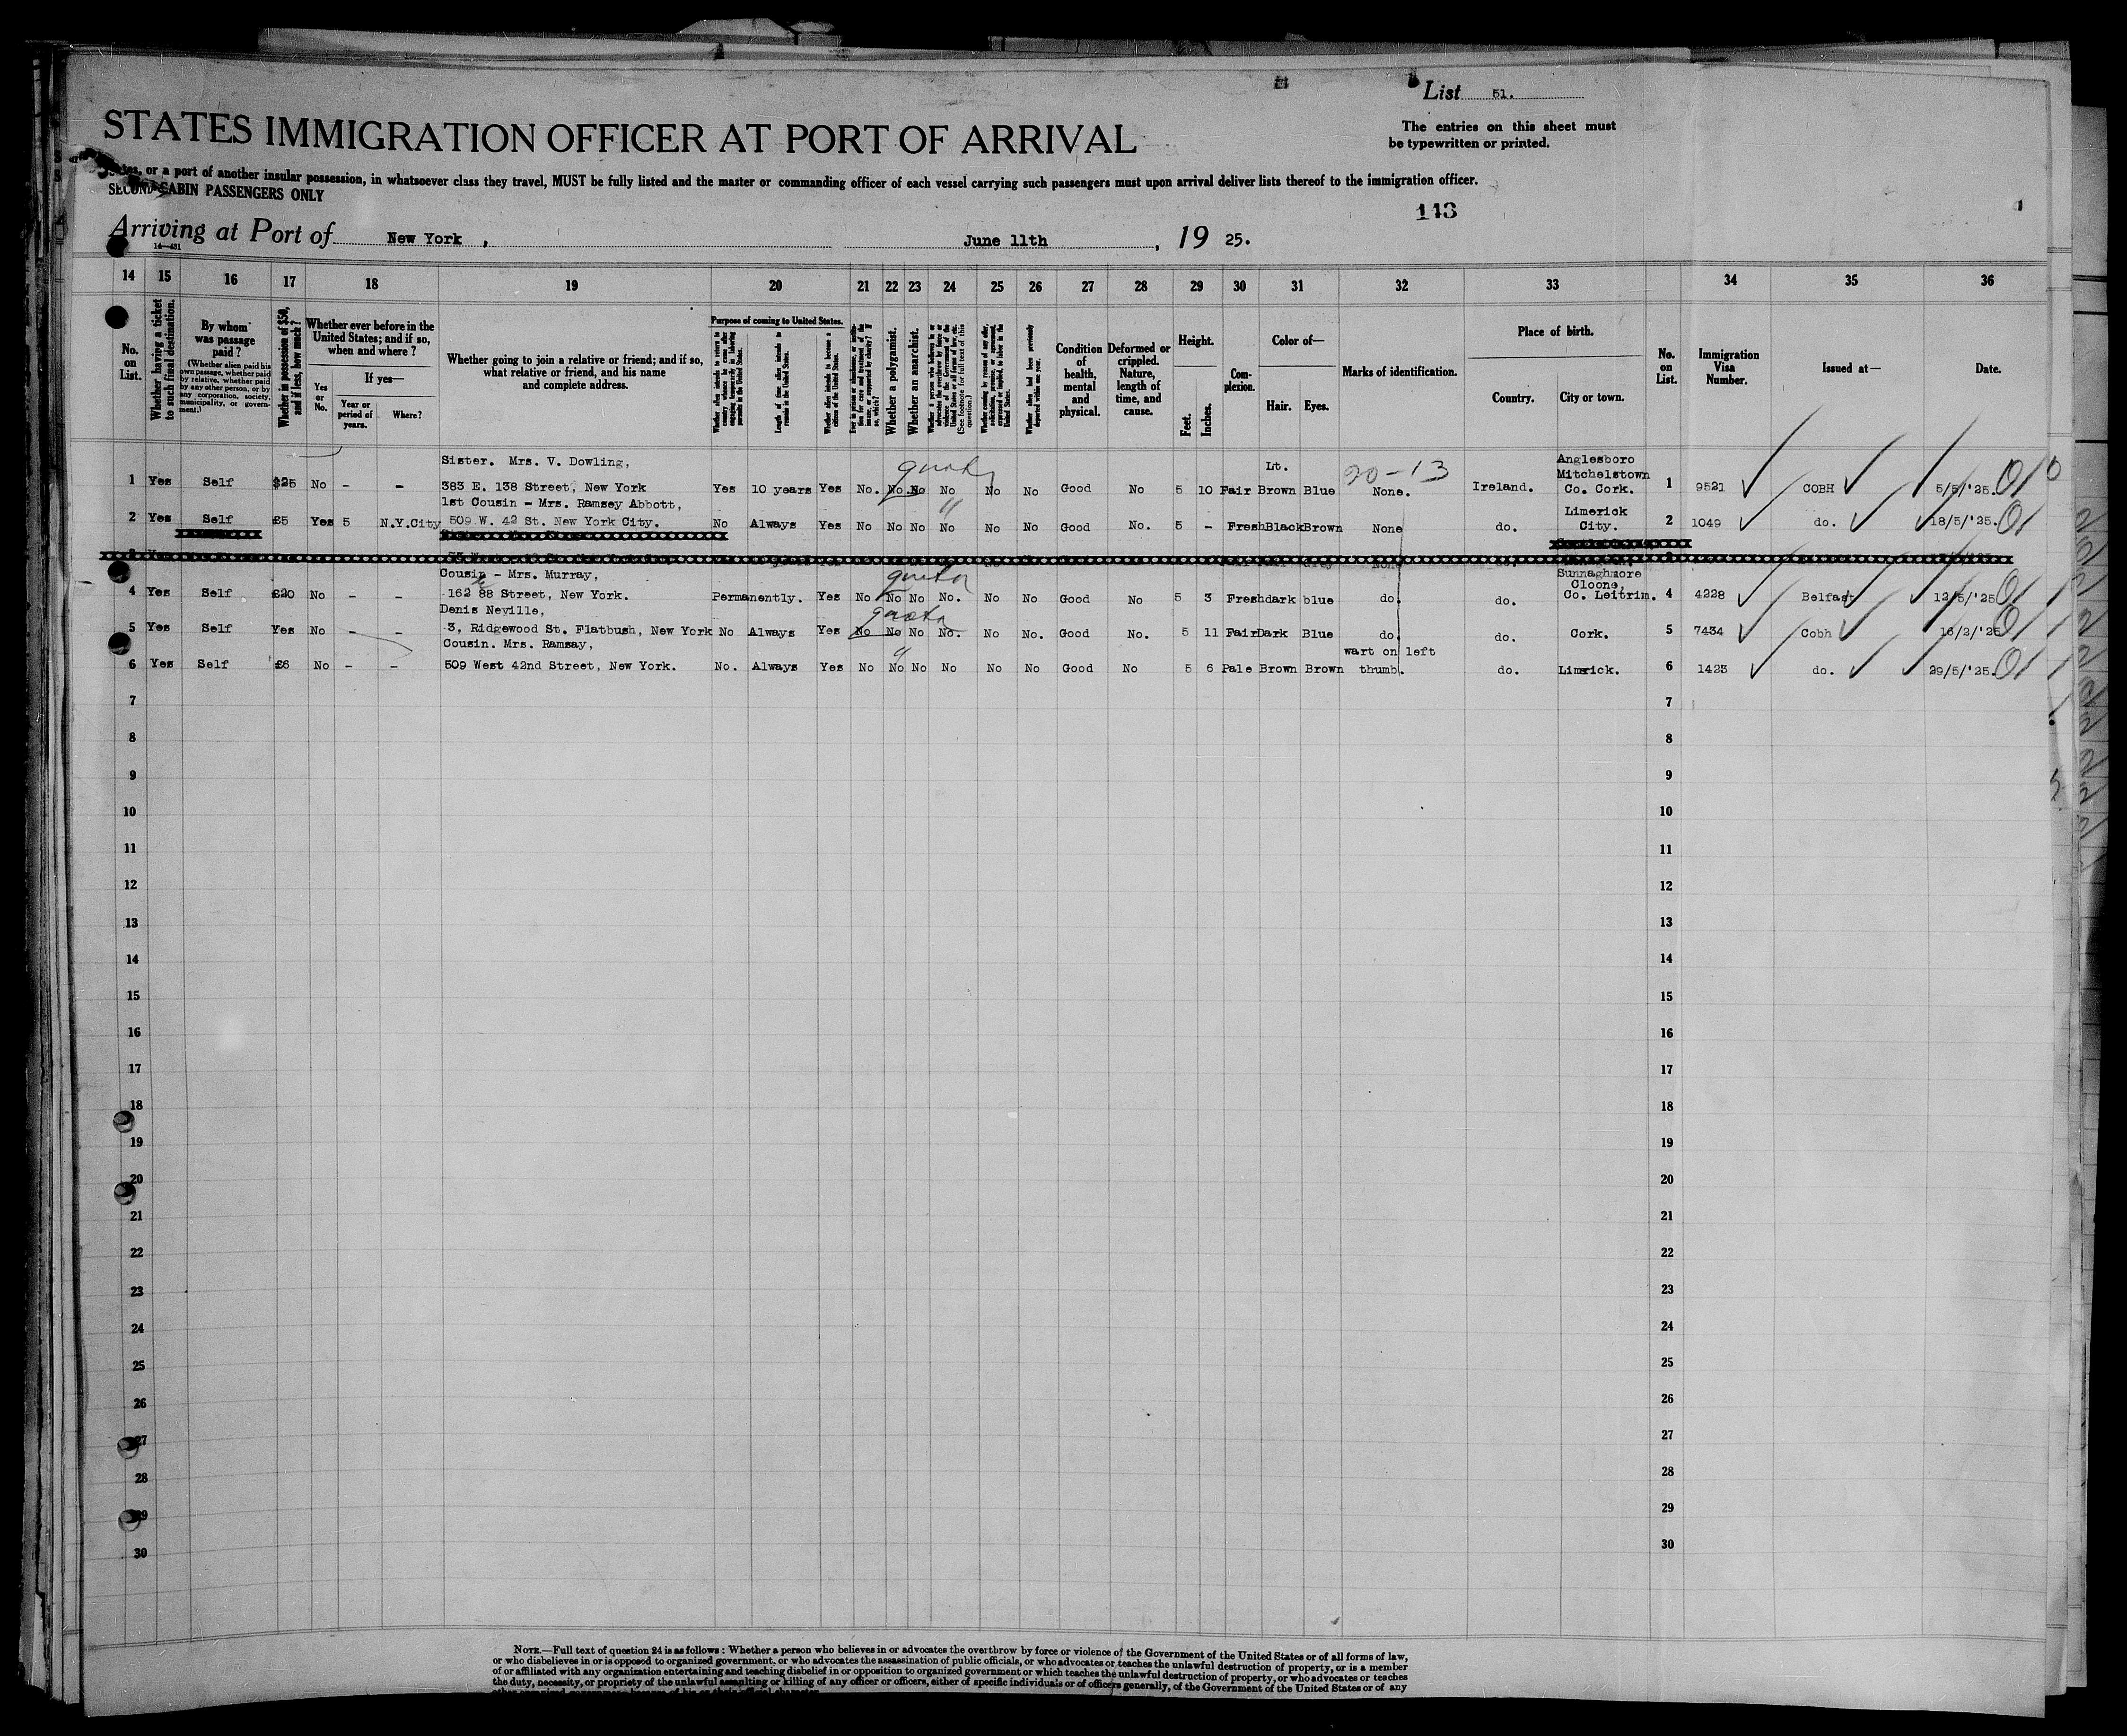 List 51.
STATES IMMIGRATION OFFICER AT PORT OF ARRIVAL
The entries on this sheet must
be typewritten or printed.
or a port of another insular possession, in whatsoever class they travel, MUST be fully listed and the master or commanding officer of each vessel carrying such passengers must upon arrival deliver lists thereof to the immigration officer.
SECOND CABIN PASSENGERS ONLY
143
Arriving at Port of New York , June 11th , 19 25.
14 15 16 17 18 19 20 21 22 23 24 25 26 27 28 29 30 31 32 33 34 35 36
No. on List.
Whether having a ticket to such final destination.
By whom was passage paid?
(Whether alien paid his own passage, whether paid by relative, whether paid by any other person, or by any corporation, society, municipality, or government.)
Whether in possession of $50, and if less, how much?
Whether ever before in the United States; and if so, when and where?
Yes or No.
If yes—
Year or period of years.
Where?
Whether going to join a relative or friend; and if so, what relative or friend, and his name and complete address.
Purpose of coming to United States.
Length of time alien intends to remain in the United States.
Whether alien intends to become a citizen of the United States.
Whether a polygamist.
Whether an anarchist.
(See footnote for full text of this question.)
Condition of health, mental and physical.
Deformed or crippled. Nature, length of time, and cause.
Height.
Feet. Inches.
Complexion.
Color of—
Hair. Eyes.
Marks of identification.
Place of birth.
Country. City or town.
No. on List.
Immigration Visa Number.
Issued at—
Date.
Sister. Mrs. V. Dowling, quota Lt. 20-13 Anglesboro
Mitchelstown
1 Yes Self $25 No - - 383 E. 138 Street, New York Yes 10 years Yes No. No No No No No Good No 5 10 Fair Brown Blue None. Ireland. Co. Cork. 1 9521 COBH 5/5/'25.
1st Cousin - Mrs. Ramsey Abbott, " Limerick
2 Yes Self £5 Yes 5 N.Y.City 509 W. 42 St. New York City. No Always Yes No No No No No No Good No. 5 - Fresh Black Brown None do. City. 2 1049 do. 18/5/'25.
Cousin - Mrs. Murray, quota Sunnaghmore
Cloone,
4 Yes Self £20 No - - 162 88 Street, New York. Permanently. Yes No No No No. No No Good No 5 3 Fresh dark blue do. do. Co. Leitrim. 4 4228 Belfast 12/5/'25
Denis Neville, quota
5 Yes Self Yes No - - 3, Ridgewood St. Flatbush, New York No Always Yes No No No No. No No. Good No. 5 11 Fair Dark Blue do. do. Cork. 5 7434 Cobh 16/2/'25
Cousin. Mrs. Ramsay, " wart on left
6 Yes Self £6 No - - 509 West 42nd Street, New York. No. Always Yes No No No No No No Good No 5 6 Pale Brown Brown thumb. do. Limerick. 6 1423 do. 29/5/'25.
7 7
8 8
9 9
10 10
11 11
12 12
13 13
14 14
15 15
16 16
17 17
18 18
19 19
20 20
21 21
22 22
23 23
24 24
25 25
26 26
27 27
28 28
29 29
30 30
NOTE.—Full text of question 24 is as follows: Whether a person who believes in or advocates the overthrow by force or violence of the Government of the United States or of all forms of law,
or who disbelieves in or is opposed to organized government, or who advocates the assassination of public officials, or who advocates or teaches the unlawful destruction of property, or is a member
of or affiliated with any organization entertaining and teaching disbelief in or opposition to organized government or which teaches the unlawful destruction of property, or who advocates or teaches
the duty, necessity, or propriety of the unlawful assaulting or killing of any officer or officers, either of specific individuals or of officers generally, of the Government of the United States or of any